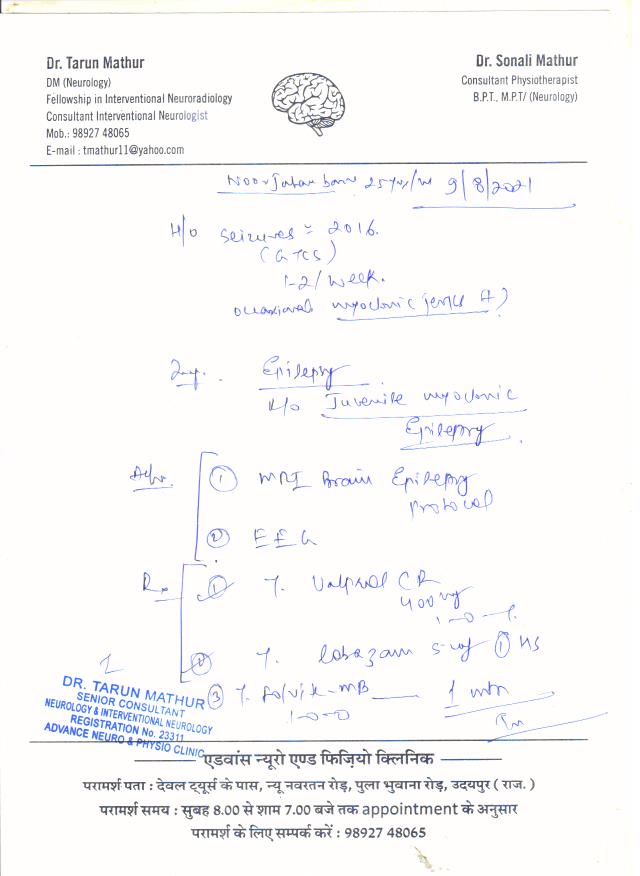 Dr. Tarun Mathur
DM (Neurology)
Fellowship in Interventional Neuroradiology
Consultant Interventional Neurologist
Mob.: 98927 48065
E-mail : tmathur11@yahoo.com
Dr. Sonali Mathur
Consultant Physiotherapist
B.P.T., M.P.T/ (Neurology)
Noor Jahan 25 9/8/2021
H/o seizures 2016.
(GTCS)
1-2/week.
occasional myoclonic jerks
Imp. Epilepsy
Juvenile myoclonic
Epilepsy
Adv. ① MRI Brain Epilepsy
Protocol
② EEG
Rx ① T. Valprol CR
400 mg
1-0-1
② T. lobazam 5 mg ① HS
③ T. folvite-MB 1 mth
1-0-0
DR. TARUN MATHUR
SENIOR CONSULTANT
NEUROLOGY & INTERVENTIONAL NEUROLOGY
REGISTRATION No. 23311
ADVANCE NEURO & PHYSIO CLINIC
एडवांस न्यूरो एण्ड फिजियो क्लिनिक
परामर्श पता : देवल ट्यूर्स के पास, न्यू नवरतन रोड़, पुला भुवाना रोड़, उदयपुर ( राज. )
परामर्श समय : सुबह 8.00 से शाम 7.00 बजे तक appointment के अनुसार
परामर्श के लिए सम्पर्क करें : 98927 48065